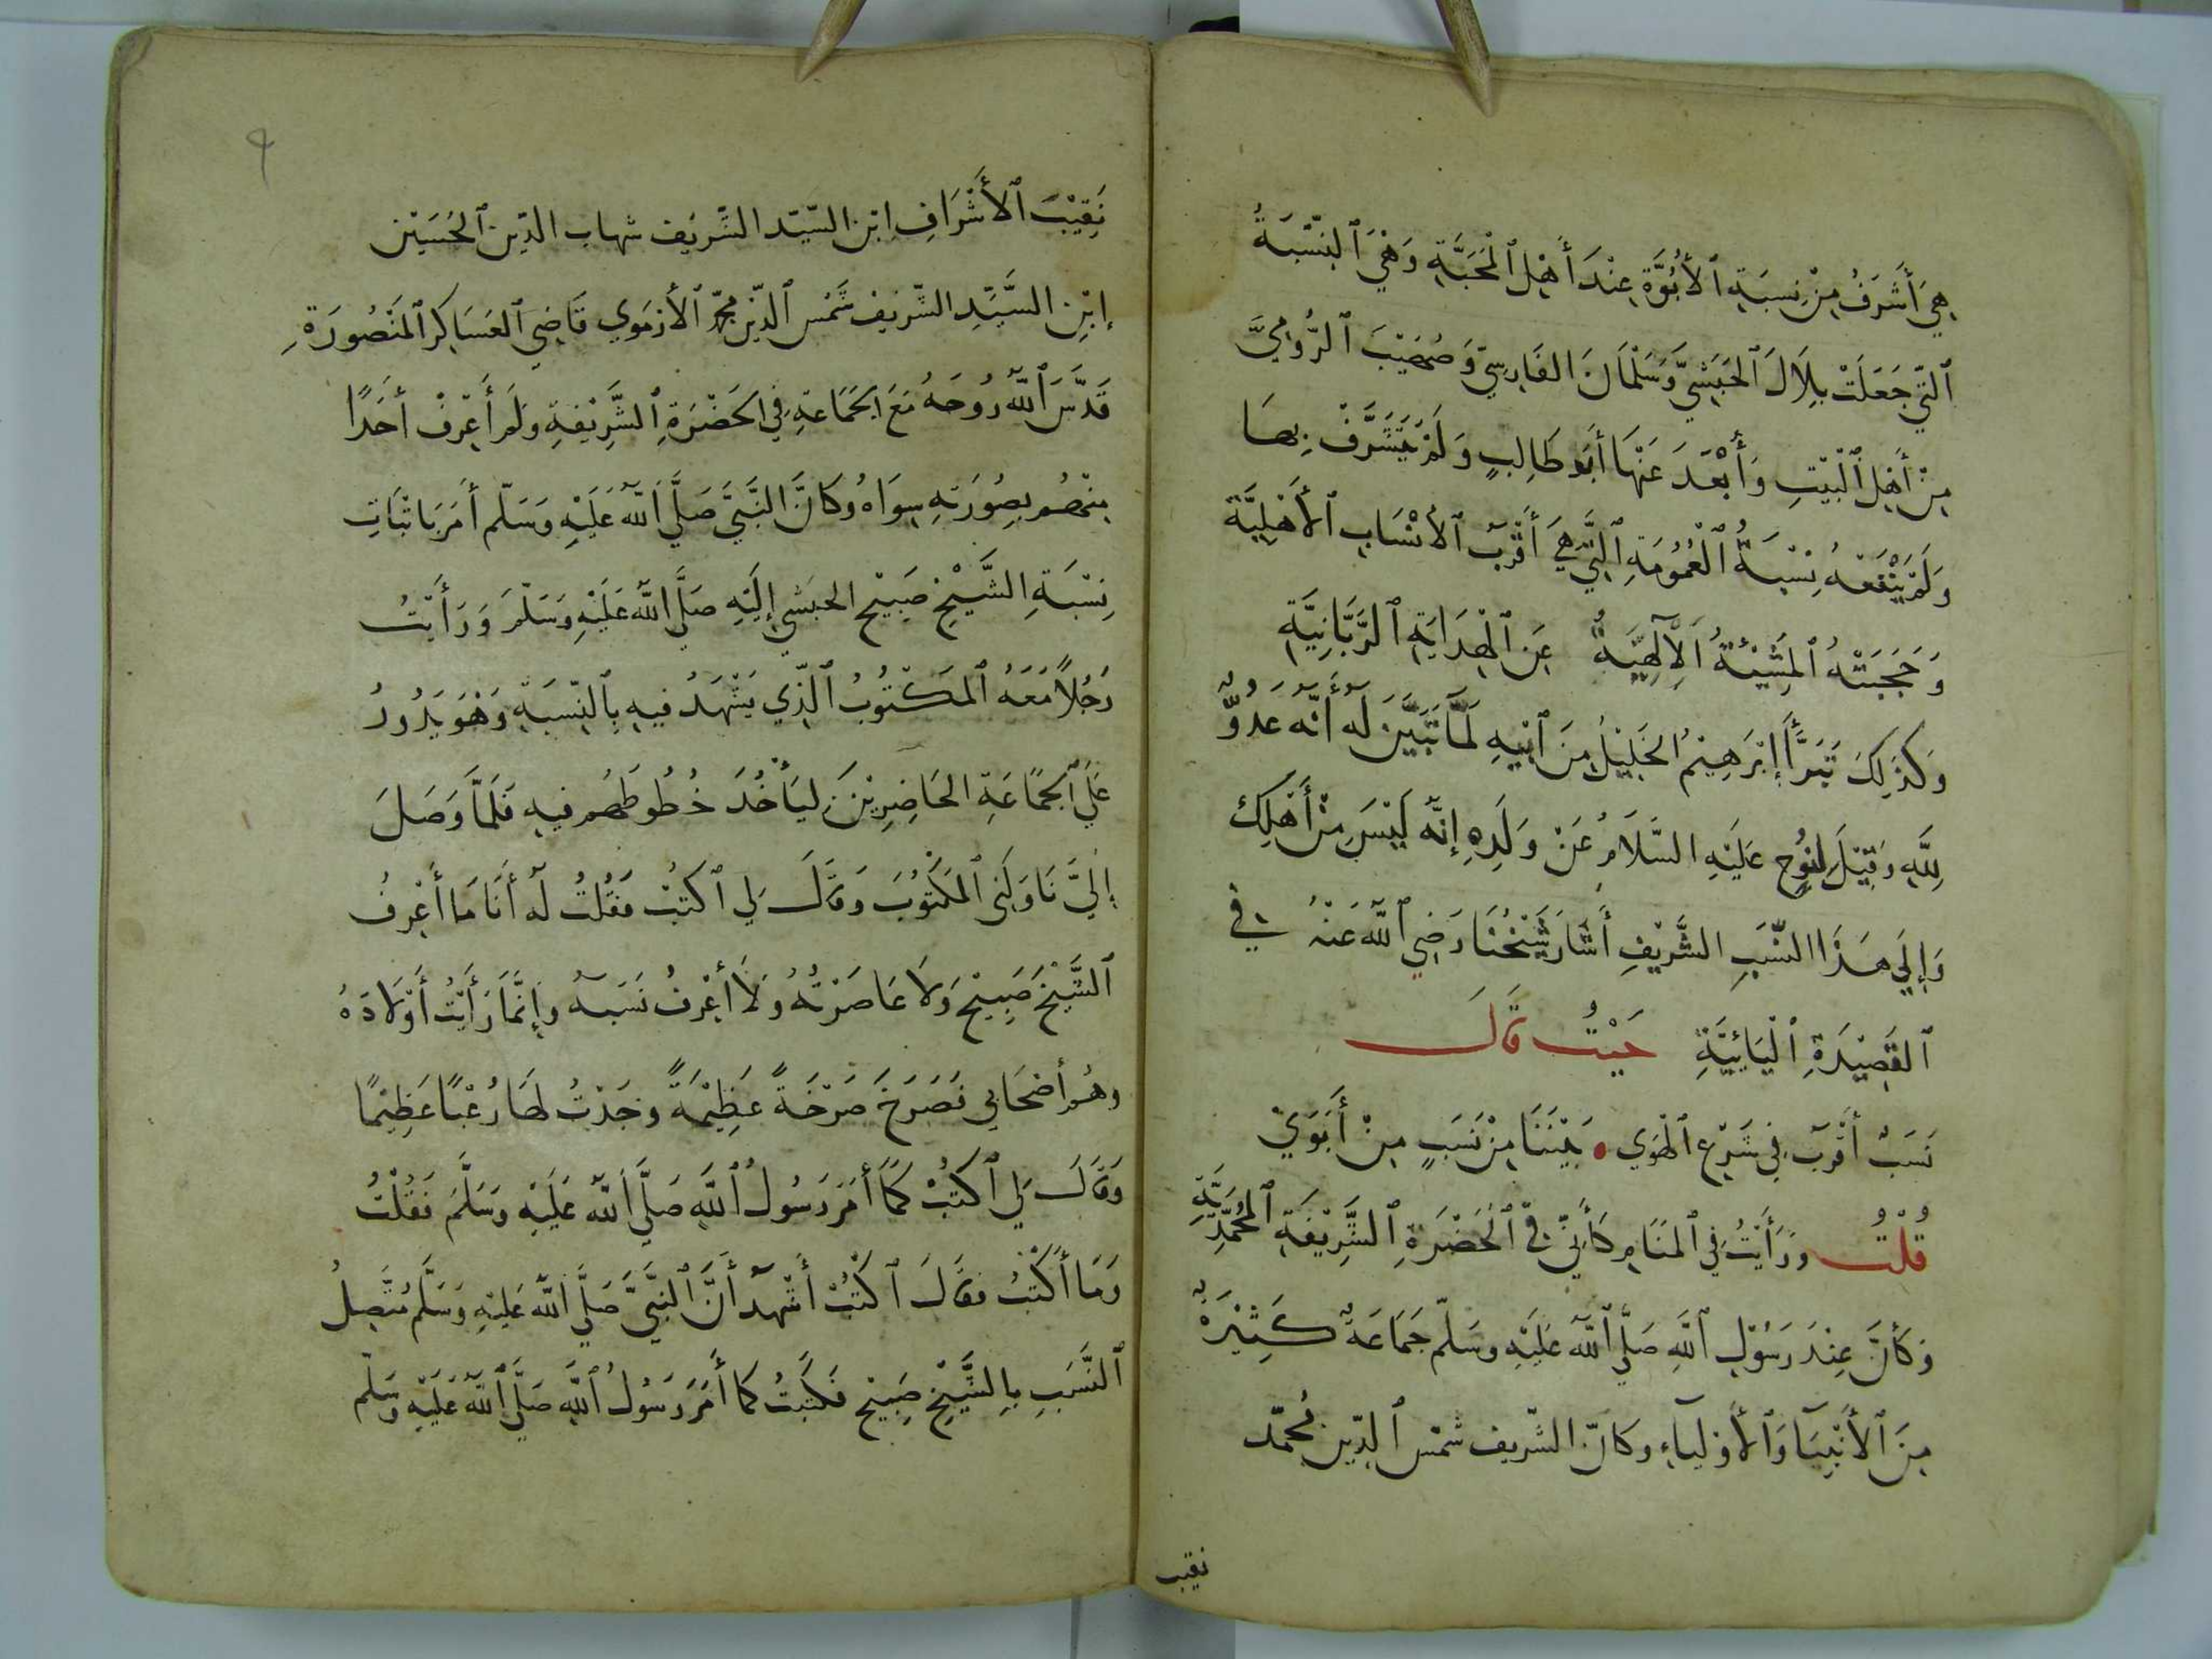 هِيَ أَشْرَفُ مِنْ نِسبَةِ ٱلأُبُوَّةِ عِنْدَ أَهْلِ ٱلْمَحَبَّةِ وَهْيَ ٱلنِسْبَةُ
ٱلتّي جَعَلَتْ بِلَالَ ٱلحَبَشِيَّ وَسَلْمَانَ الفَارِسِيّ وَصُهَيْبَ ٱلرُّومِيَّ
مِنْ أَهْلِ ٱلْبَيْتِ وَأُبْعَدَ عَنْهَا أَبُو طَالِبٍ وَلَمْ يَتَشَرَّفْ بِهَا
وَلَمْ يَنْفَعْهُ نِسْبَةُ ٱلْعُمُومَةِ ٱلتَّي هِيَ أَقْرَبُ ٱلأَنْسَابِ ٱلأَهْلِيَّة
وَحَجَبَتْهُ ٱلمَشِيْئَةُ ٱلإِلَهِيَّةُ عَنِ ٱلْهِدَايَةِ ٱلرَّبَّانِيَّةِ
وَكَذَلِكَ تَبَرَّأَ إبْرَهِيْمُ الخَلِيْلُ مِنَ ٱبِيْهِ لَمَّا تَبَيَّنَ لَهُ أَنَّهُ عَدُوٌّ
لِلَّهِ وَقِيْلَ لِنُوحٍ عَلَيْهِ السَّلَامُ عَنْ وَلَدِهِ إنَّهُ لَيْسَ مِنْ أَهْلِكَ
وَإِلَي هَذَا النّسَبِ الشَّرِيْفِ أَشَارَ شَيْخُنَا رَضِي ٱللَّهُ عَنْهُ فِي
ٱلقَصِيْدَةِ ٱلْيَائِيَّةِ حَيْثُ قَالَ
نَسَبٌ أَقْرَبُ فِي شَرْعِ ٱلْهَوَي • بَيْنَنَا مِنْ نَسَبٍ مِنْ أَبَوَيْ
قُلْتُ وَرَأَيْتُ فِي ٱلمَنَامِ كَأَنِّي فِي ٱلْحَضْرَةِ ٱلشَّرِيْفَةِ ٱلمُحَمَّدِيَّةِ
وَكَأنَّ عِنْدَ رَسُوْلِ ٱللَّهِ صَلَّي ٱللَّهُ عَلَيْهِ وسَلّم جَمَاعَةٌ كَثِيْرَةٌ
مِنَ ٱلأَنْبِيَآ وَٱلأَوْلِيآءِ وكَانَ الشّرِيف شمْس ٱلدّين مُحمّد
نقيب
٩
نَقِيْبَ ٱلأَشْرَافِ ابْن السّيّد الشَّريْف شهاب الدّين ٱلحُسَيْن
إبْنِ السَّيَّدِ الشّريف شَمْس ٱلدّين محمّد ٱلأرْمَوي قَاضِي ٱلعَسَاكِر ٱلمَنْصُورَةِ
قَدَّسَ ٱللَّهُ رُوحَهُ مَعَ ٱلجَمَاعَةِ فِي ٱلحَضْرَةِ ٱلشَّرِيْفةِ وَلَم أَعْرِفْ أَحَدًا
مِنْهُم بِصُورَتِهِ سِوَاهُ وكَانَ النَّبِيَّ صَلَّي ٱللَّهُ عَلَيْهِ وَسَلّم أَمَرَ بَاثْبَاتِ
نِسْبَةِ الشَّيْخِ صَبِيْح الحبَشي إِلَيْهِ صَلَّي ٱللَّه عَلَيْهِ وَسَلّمَ وَرَأَيْتُ
رَجُلًا مَعَهُ ٱلمَكْتُوبُ ٱلَّذِي يَشْهَدُ فيهِ بِٱلنّسْبَةِ وَهْوَ يَدُورُ
عَلَي ٱلجَمَاعَةِ الحَاضِرِيْنَ لِيَأْخُذَ خُطُوطَهُم فيهِ فَلَمَّا وَصَلَ
إِلَيَّ نَاوَلَنِي ٱلمَكْتُوْبَ وَقَالَ لِي ٱكْتُبْ فَقُلْتُ لَهُ أَنَا مَا أَعْرِفُ
ٱلشَّيْخَ صَبِيْح وَلَا عَاصَرْتُهُ وَلَا أَعْرِفُ نَسَبَهُ وَإِنَّمَا رَأَيْتُ أَوْلَادَهُ
وهُم أصْحَابِي فَصَرَخَ صَرْخَةً عَظِيْمَةً وجَدْتُ لهَا رُعْبًا عَظِيْمًا
وَقَالَ لِي ٱكْتُبْ كَمَا أَمَرَ رَسُولُ ٱللَّهِ صَلَّي ٱللَّهُ عَلَيْهِ وَسَلَّمَ فَقُلْتُ
وَمَا أَكْتُبُ فقَالَ ٱكْتُبْ أشْهَدُ أَنَّ ٱلنَبِيَّ صَلَّي ٱللَّهُ عَلَيْهِ وَسَلَّم مُتَّصِلُ
ٱلنَّسَبِ بِالشَّيْخِ صَبِيْح فَكَتَبْتُ كمَا أَمَرَ رَسُولُ ٱللَّهِ صَلَّي ٱللَّهُ عَلَيْهِ وسَلّم